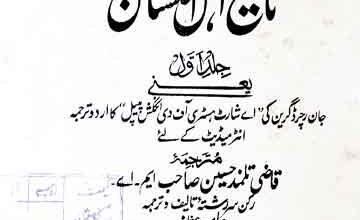 تاریخ اہل انگلستان
جلد اول
یعنی
جان رچرڈ گرین کی ”اے شارٹ ہسٹری آف دی انگلش پیپل“ کا اردو ترجمہ
انٹرمیڈیٹ کے لئے
مترجمہ
قاضی تلمذ حسین صاحب ایم۔اے۔
رکن سررشتہ تالیف و ترجمہ